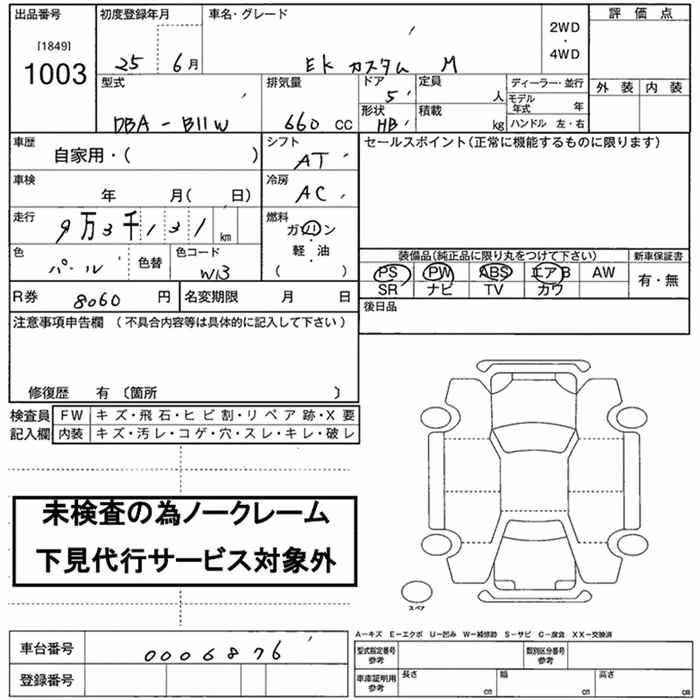 出品番号 初度登録年月 車名・グレード 評価点
[1849] 2WD
1003 25 6月 EK カスタム M 4WD
型式 排気量 ドア 定員 ディーラー・並行 外装 内装
5 人 モデル年式 年
DBA-B11W 660 CC 形状 HB 積載 kg ハンドル 左・右
車歴 自家用・( ) シフト AT セールスポイント(正常に機能するものに限ります)
車検 年 月( 日) 冷房 AC
走行 9万3千131 km 燃料 ガソリン
軽・油
( )
色 パール 色替 色コード W13
装備品(純正品に限り丸をつけて下さい) 新車保証書
PS PW ABS エアB AW 有・無
SR ナビ TV カワ
R券 8060 円 名変期限 月 日 後日品
注意事項申告欄 (不具合内容等は具体的に記入して下さい)
修復歴 有 〔箇所 〕
検査員 FW キズ・飛石・ヒビ割・リペア跡・X要
記入欄 内装 キズ・汚レ・コゲ・穴・スレ・キレ・破レ
未検査の為ノークレーム
下見代行サービス対象外
スペア
A−キズ E−エクボ U−凹み W−補修跡 S−サビ C−腐食 XX−交換済
車台番号 0006876
型式指定番号 参考 類別区分番号 参考
登録番号
車庫証明用 参考 長さ cm 幅 cm 高さ cm